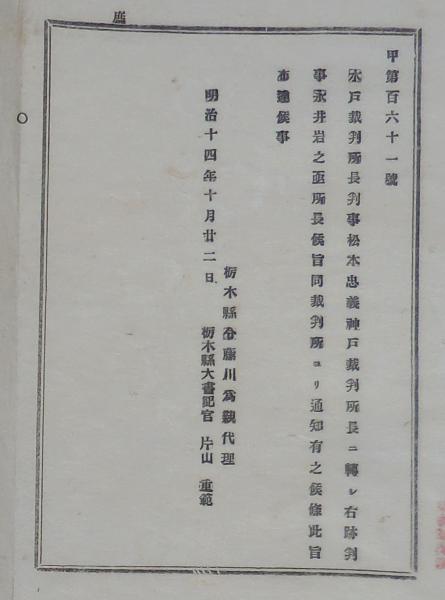 甲第百六十一號
水戸裁判所長判事松本忠義神戸裁判所長ニ轉シ右跡判
事永井岩之亟所長候旨同裁判所ヨリ通知有之候條此旨
布達候事
明治十四年十月廿二日
栃木縣令藤川爲親代理
栃木縣大書記官 片山重範